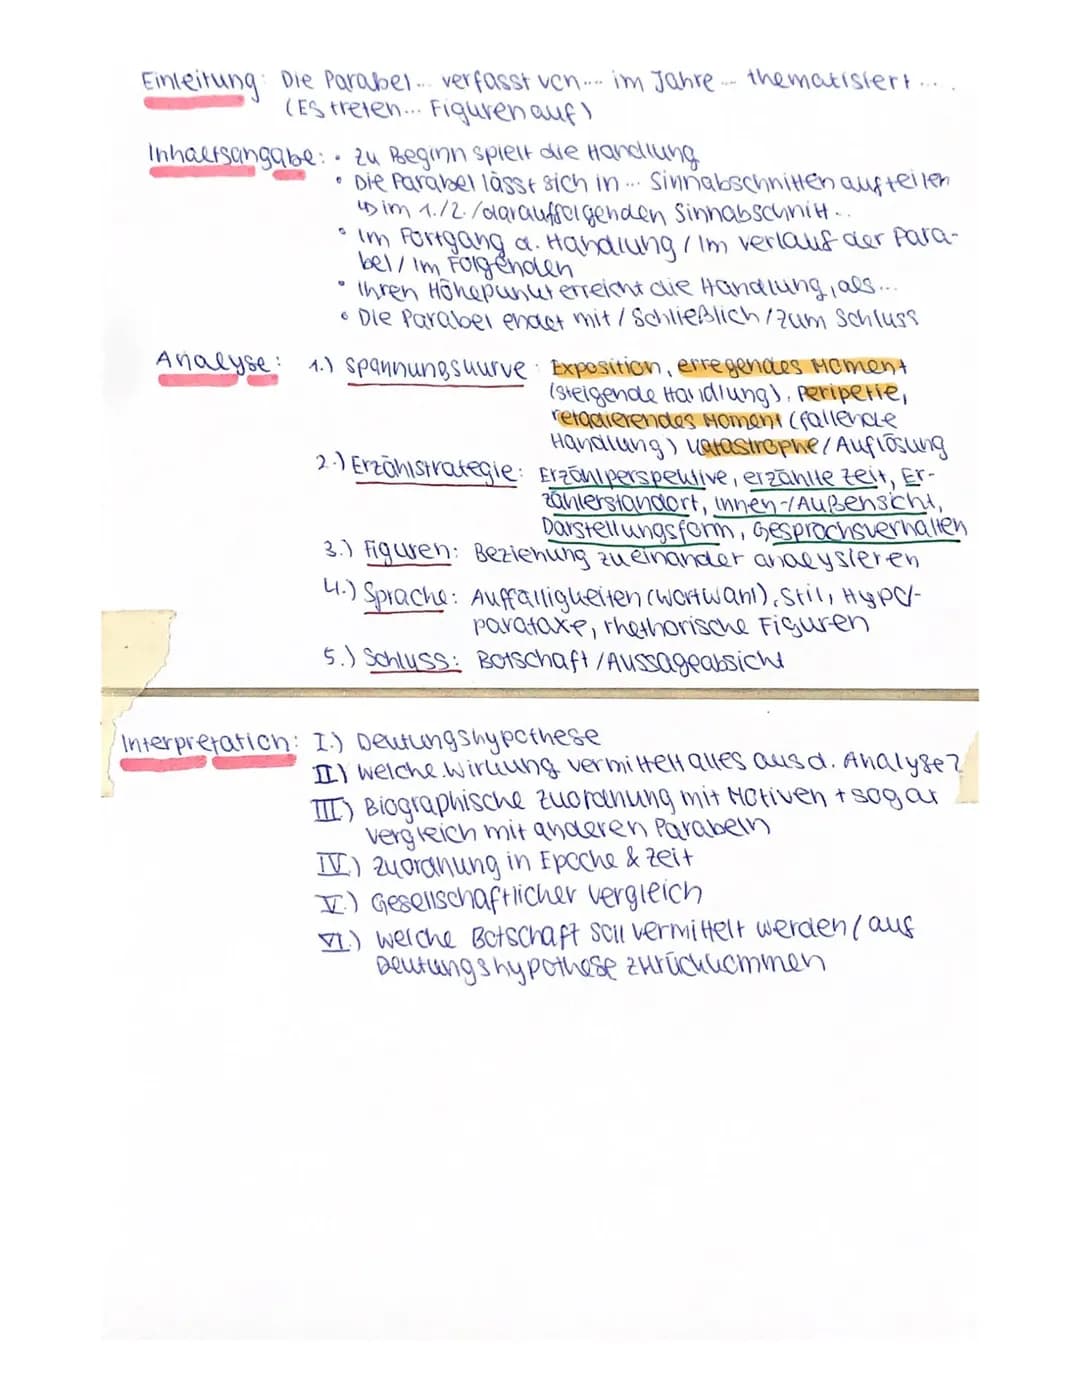 Einleitung: Die Parabel... verfasst von.... im Jahre... thematisiert....
(Es treten... Figuren auf)
Inhaltsangabe: • zu Beginn spielt die Handlung
• Die Parabel lässt sich in... Sinnabschnitten aufteilen
↳ im 1./2./darauffolgenden Sinnabschnitt..
• Im Fortgang d. Handlung / Im Verlauf der Para-
bel / im Folgenden
• Ihren Höhepunkt erreicht die Handlung, als...
• Die Parabel endet mit / Schließlich / zum Schluss
Analyse: 1.) Spannungskurve: Exposition, erregendes Moment
(steigende Handlung), Peripetie,
retadierendes Moment (fallende
Handlung) Katastrophe / Auflösung
2.) Erzählstrategie: Erzählperspektive, erzählte Zeit, Er-
zählerstandort, Innen-/Außensicht,
Darstellungsform, Gesprächsverhalten
3.) Figuren: Beziehung zueinander analysieren
4.) Sprache: Auffälligkeiten (Wortwahl), Stil, Hypo-/
parataxe, rhethorische Figuren
5.) Schluss: Botschaft / Aussageabsicht
Interpretation: I.) Deutungshypothese
II.) Welche Wirkung vermittelt alles aus d. Analyse?
III.) Biographische Zuordnung mit Motiven + sogar
Vergleich mit anderen Parabeln
IV.) Zuordnung in Epoche & Zeit
V.) Gesellschaftlicher Vergleich
VI.) Welche Botschaft soll vermittelt werden / auf
Deutungshypothese zurückkommen